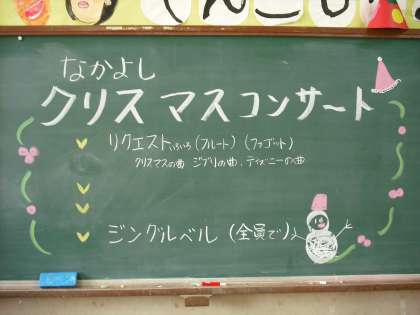 なかよし
クリスマスコンサート
リクエストいろいろ (フルート) (ファゴット)
クリスマスの曲 ジブリの曲、ディズニーの曲
ジングルベル (全員で)